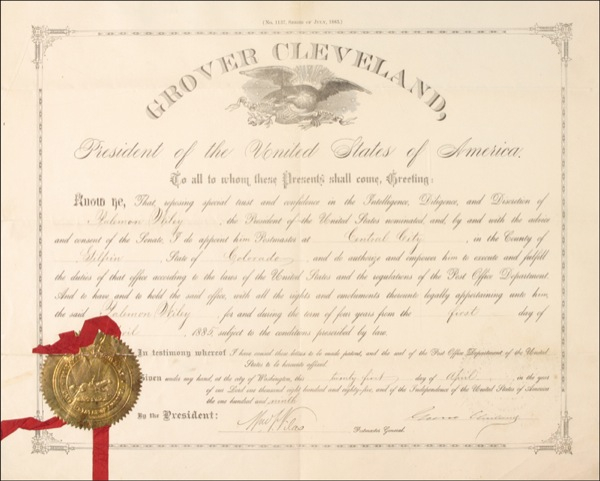 GROVER CLEVELAND,
President of the United States of America.
To all to whom these Presents shall come, Greeting:
Know ye, That reposing special trust and confidence in the Intelligence, Diligence, and Discretion of
the President of the United States nominated, and, by and with the advice
and consent of the Senate, I do appoint him Postmaster at Central City, in the County of
Gilpin, State of Colorado, and do authorize and empower him to execute and fulfill
the duties of that office according to the laws of the United States and the regulations of the Post Office Department.
And to have and to hold the said office, with all the rights and emoluments thereunto legally appertaining unto him,
the said for and during the term of four years from the first day of
1885, subject to the conditions prescribed by law.
In testimony whereof I have caused these letters to be made patent, and the seal of the Post Office Department of the United
States to be hereunto affixed.
Given under my hand, at the city of Washington, the twenty first day of April in the year
of our Lord one thousand eight hundred and eighty five, and of the Independence of the United States of America
the one hundred and ninth
By the President: Grover Cleveland
Wm F Vilas
Postmaster General.